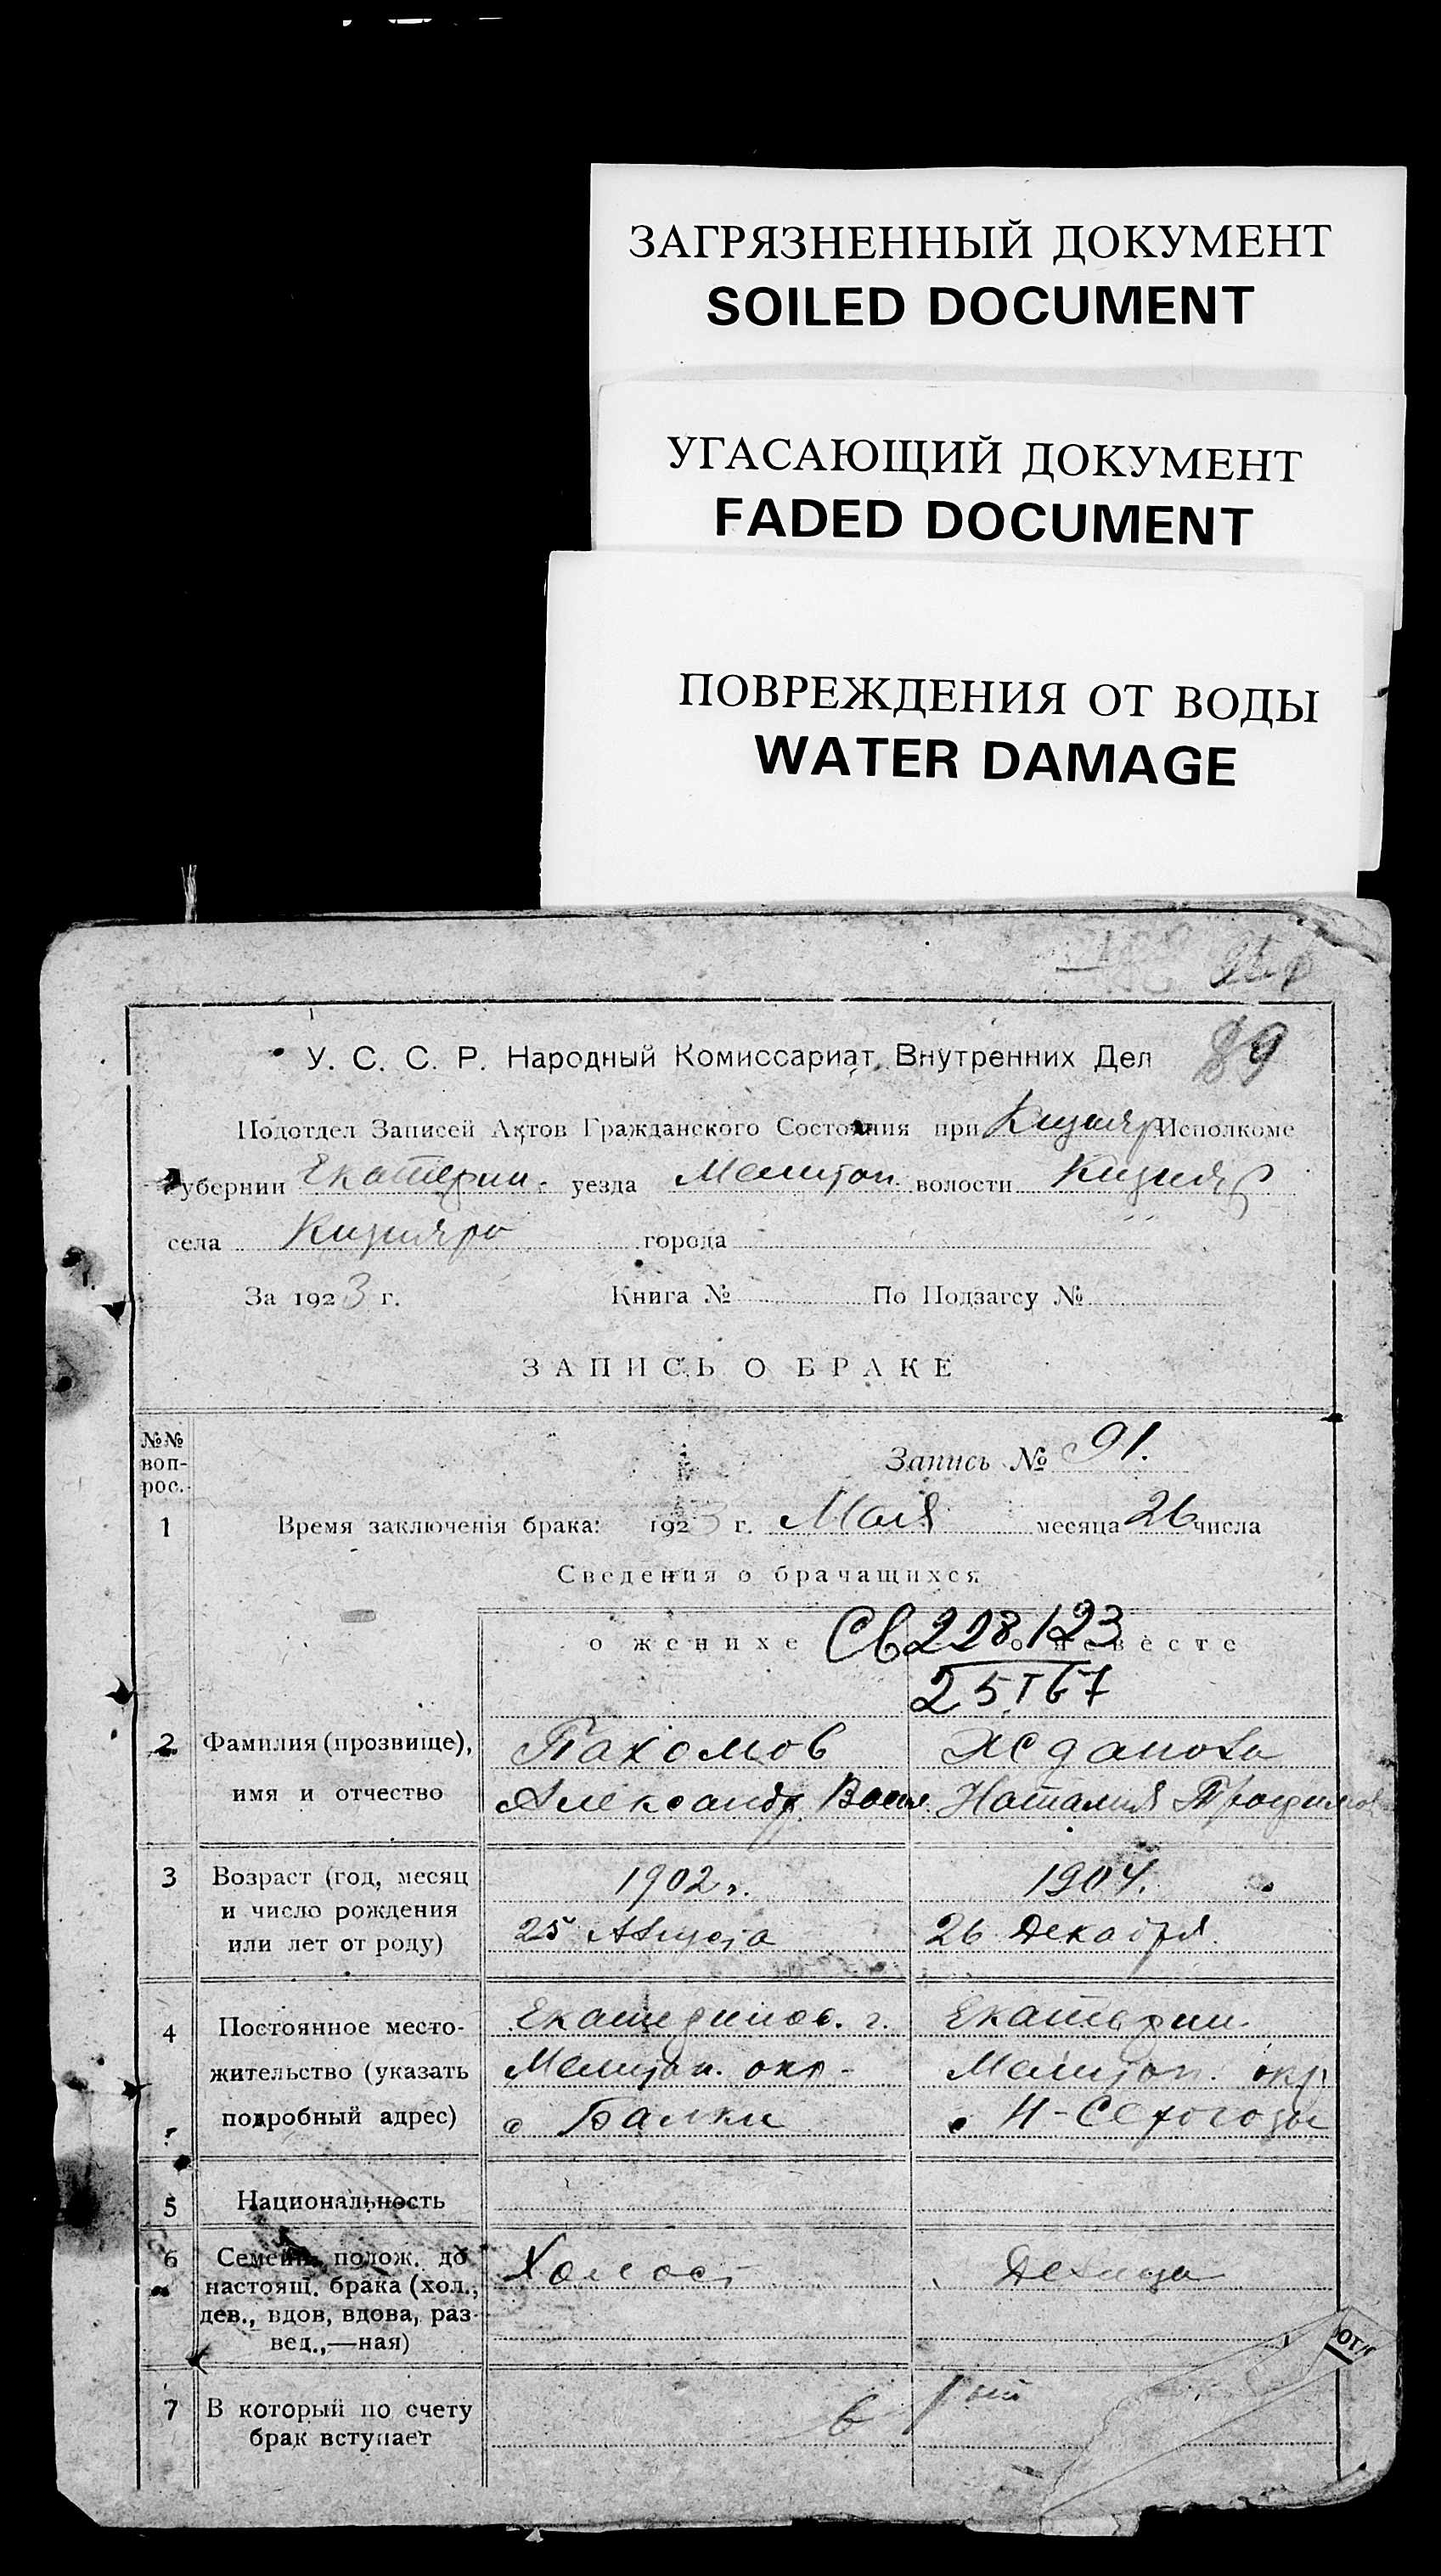 ЗАГРЯЗНЕННЫЙ ДОКУМЕНТ
SOILED DOCUMENT
УГАСАЮЩИЙ ДОКУМЕНТ
FADED DOCUMENT
ПОВРЕЖДЕНИЯ ОТ ВОДЫ
WATER DAMAGE
89
У. С. С. Р. Народный Комиссариат Внутренних Дел
Подотдел Записей Актов Гражданского Состояния при Кизияр Исполкоме
Губернии Екатерин. уезда Мелитоп. волости Кизияр
села Кизияры города
За 1923 г. Книга № По Подзагсу №
ЗАПИСЬ О БРАКЕ
№№ воп-рос.
Запись № 91.
1 Время заключенія брака: 1923 г. Мая месяца 26 числа
Сведения о брачащихся
о женихе о невесте
Св 228/23
25 I 67
2 Фамилия (прозвище), Пахомов Жданова
имя и отчество Александр Васил Наталия Трофимов
3 Возраст (год, месяц 1902 г. 1904.
и число рождения
или лет от роду) 25 Августа 26 Декабря
4 Постоянное место- Екатеринос. г. Екатерин.
жительство (указать Мелитоп. окр. Мелитоп. окр.
подробный адрес) с Балки с Н-Серогозы
5 Национальность
6 Семейн. полож. до Холост Девица
настоящ. брака (хол.,
дев., вдов, вдова, раз-
вед.,—ная)
7 В который по счету в 1 ый
брак вступает